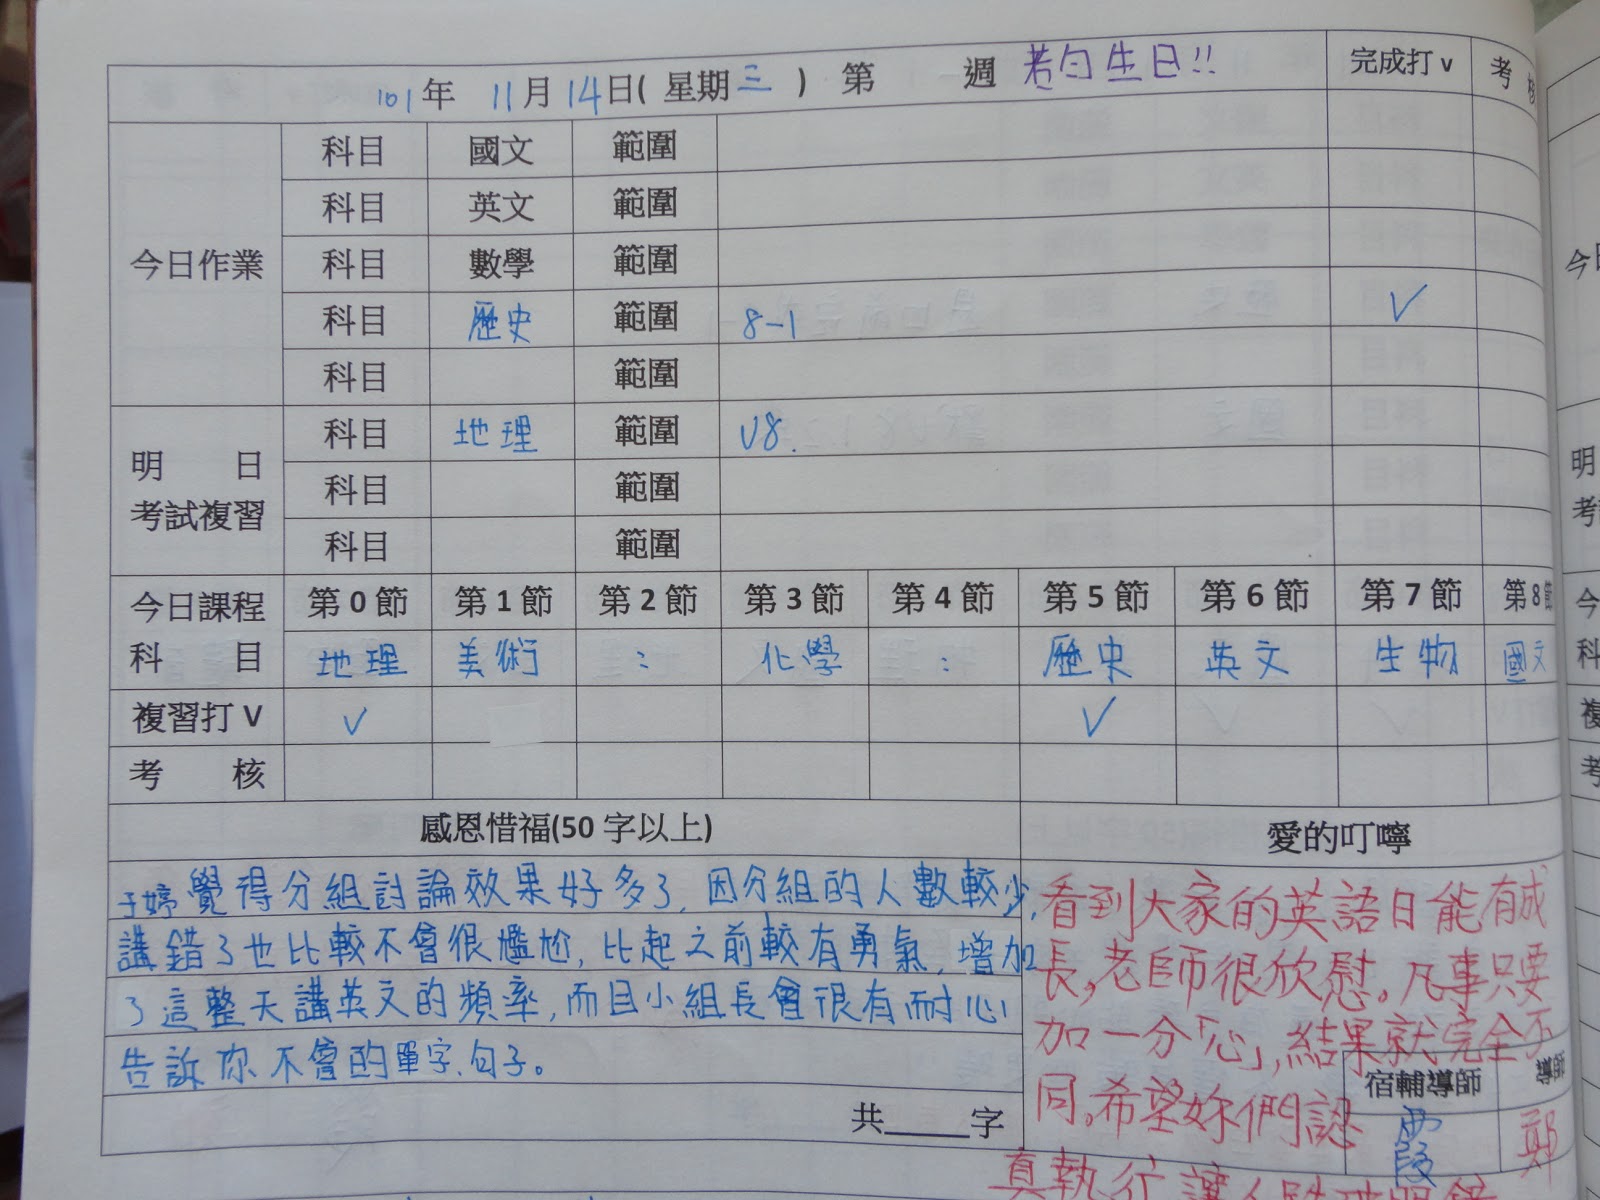 101年 11月14日( 星期三 ) 第 週 若勻生日!! 完成打v 考核
今日作業
科目 國文 範圍
科目 英文 範圍
科目 數學 範圍
科目 歷史 範圍 8-1 ✓
科目 範圍
明日考試複習
科目 地理 範圍 V8.
科目 範圍
科目 範圍
今日課程 第0節 第1節 第2節 第3節 第4節 第5節 第6節 第7節 第8節
科目 地理 美術 : 化學 : 歷史 英文 生物 國文
複習打V ✓ ✓
考核
感恩惜福(50字以上) 愛的叮嚀
于婷覺得分組討論效果好多了,因分組的人數較少,
講錯了也比較不會很尷尬,比起之前較有勇氣,增加
了這整天講英文的頻率,而且小組長會很有耐心
告訴你不會的單字、句子。
共 字
看到大家的英語日能有成
長,老師很欣慰。凡事只要
加一分「心」,結果就完全不
同,希望妳們認
真執行,讓
宿輔導師 導師
霞 鄭